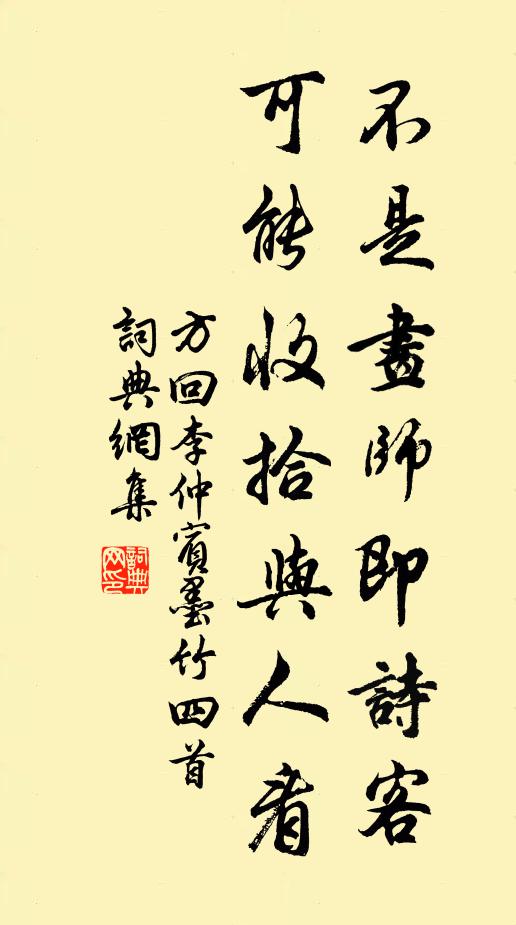 不是畫師即詩客
可能收拾與人看
方回李仲賓墨竹四首
詞典網集
詞典网印